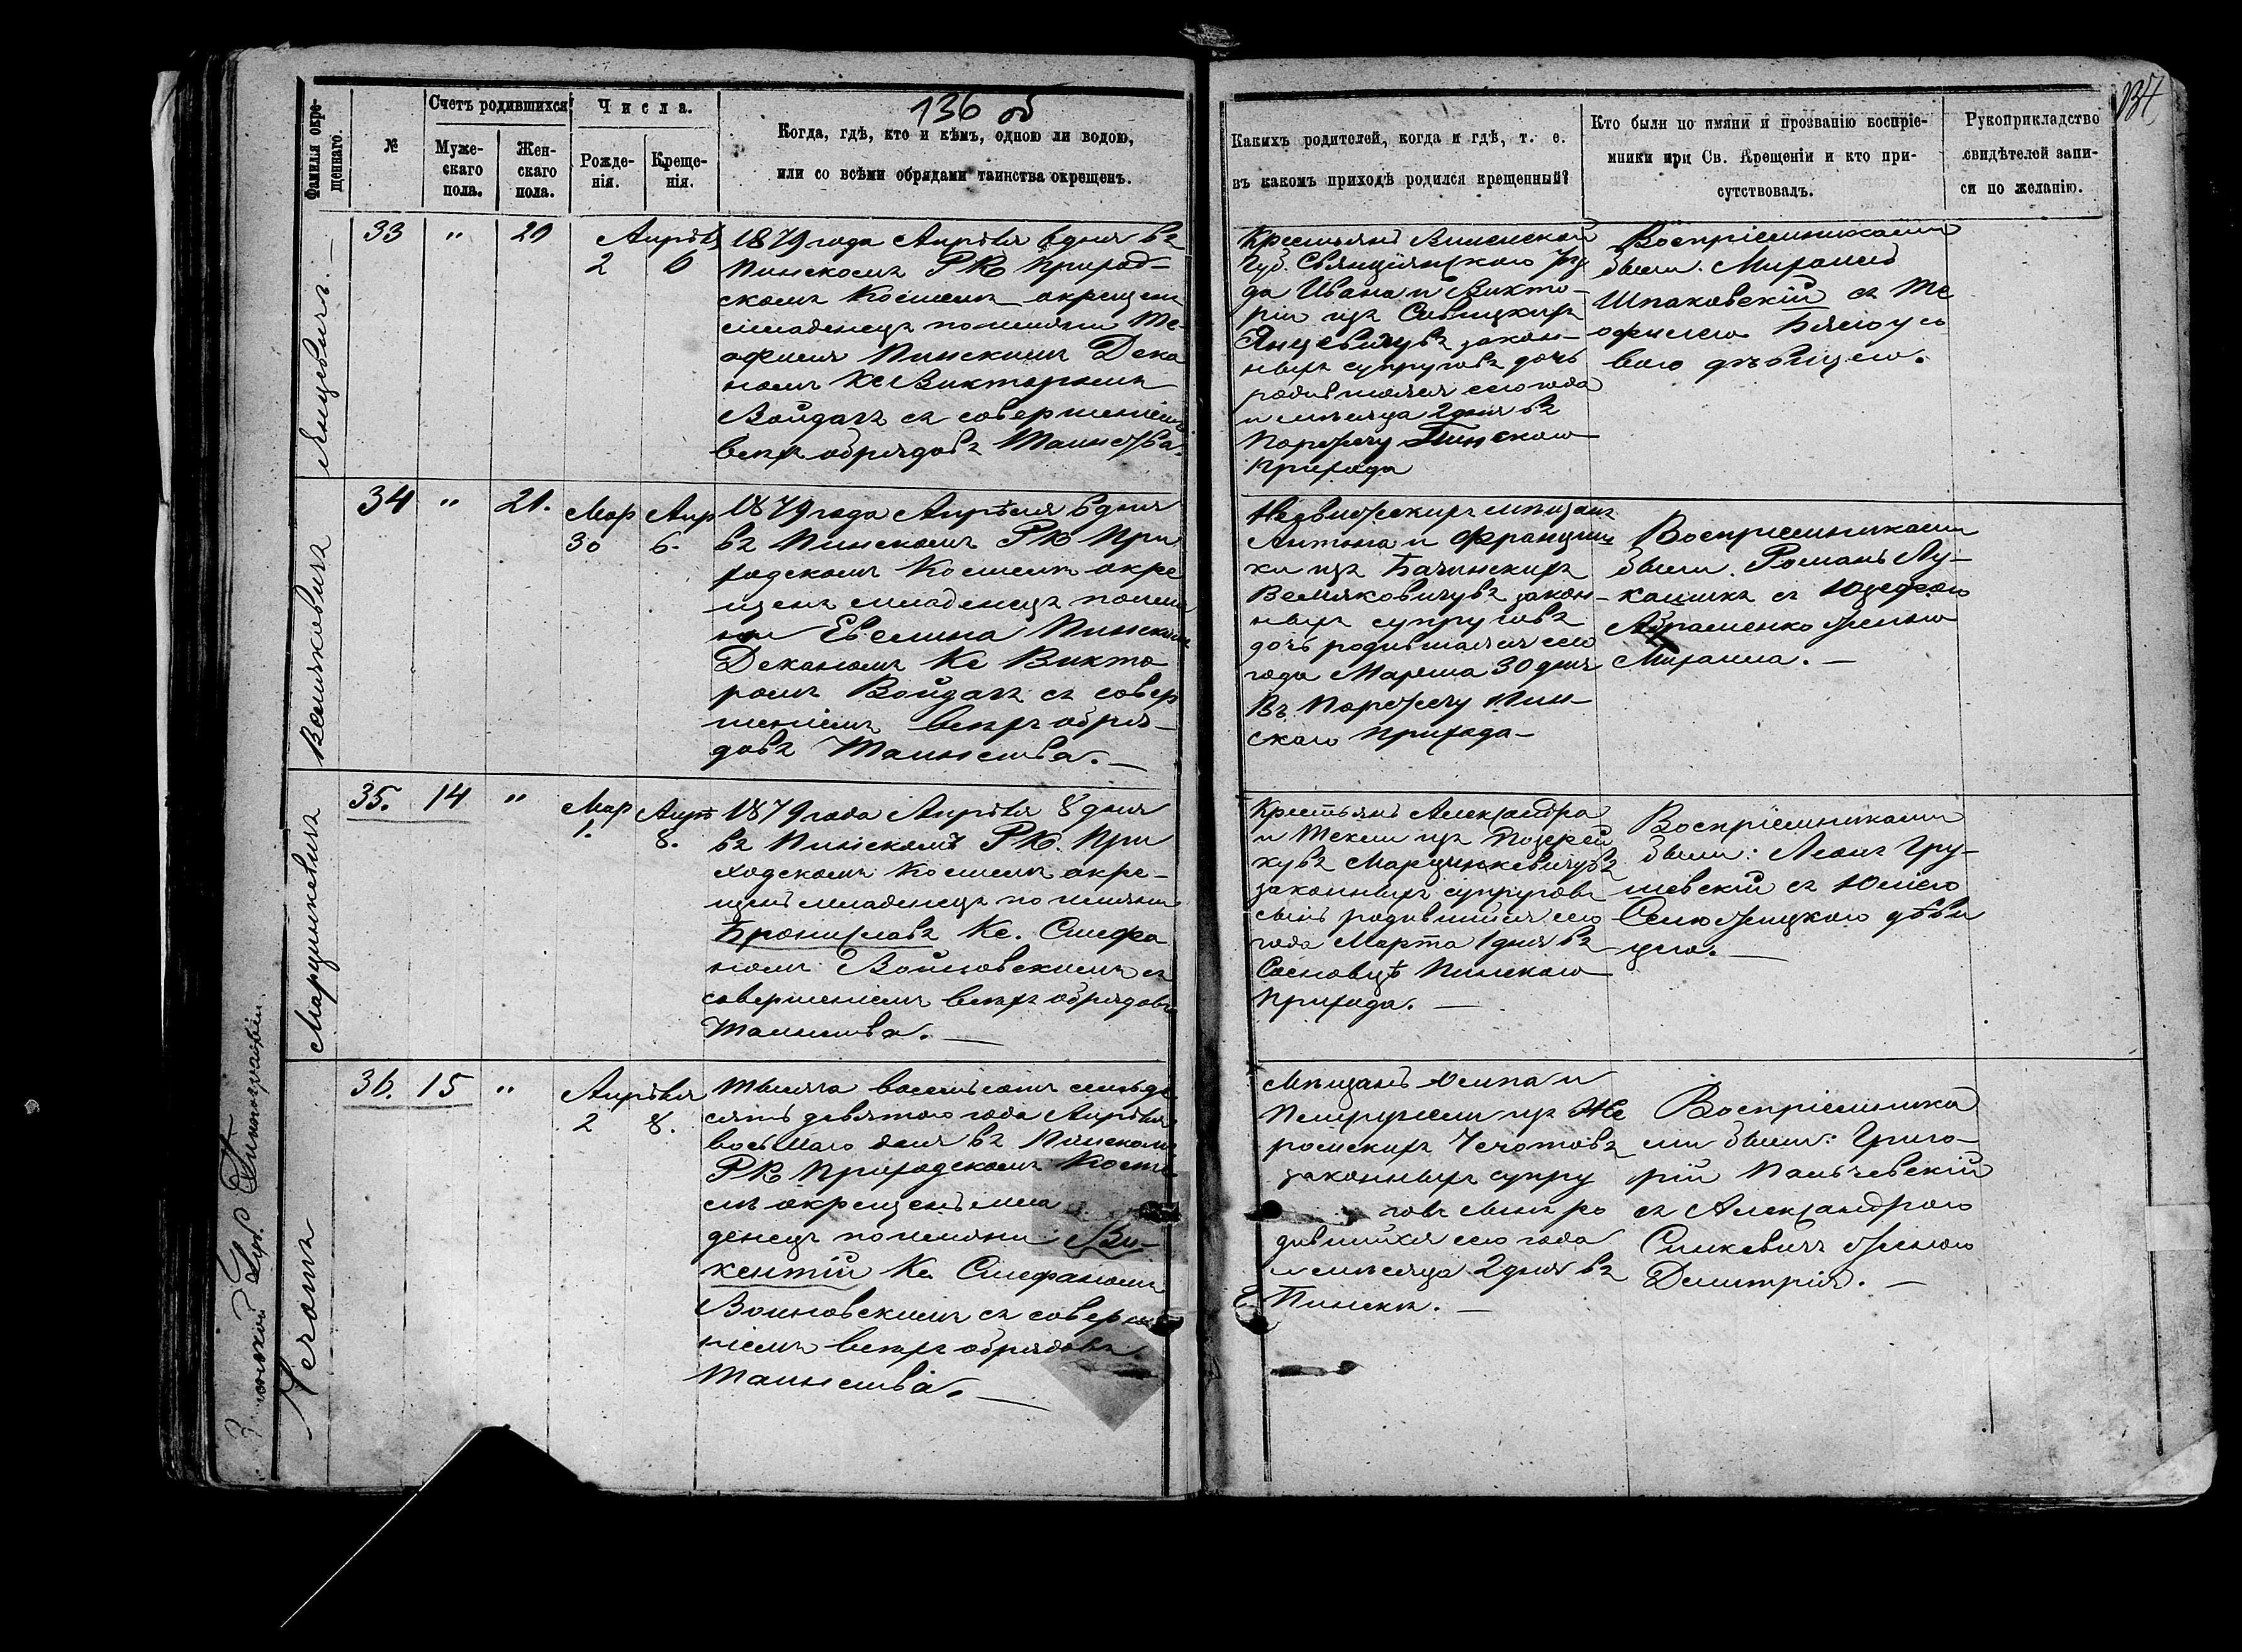 136 об
137
Фамилія окре-
щеннаго.
№
Счетъ родившихся
Муже-
скаго
пола.
Жен-
скаго
пола.
Числа.
Рожде-
нія.
Креще-
нія.
Когда, гдѣ, кто и кѣмъ, одною ли водою,
или со всѣми обрядами таинства окрещенъ.
Каких​ъ родителей, когда и гдѣ, т. е.
въ какомъ приходѣ родился крещенный?
Кто были по имяни и прозванію воспріе-
мники при Св. Крещеніи и кто при-
сутствовалъ.
Рукоприкладство
свидѣтелей запи-
си по желанію.
Янцевичъ.
33 " 20
Апрѣля
2 6
1879 года Апрѣля 6 дня въ
Пинскомъ РК Приход-
скомъ Костелѣ окрещенъ
младенецъ по имяни Те-
офиля Пинскимъ Дека
номъ Кс Викторомъ
Войдагъ съ совершеніемъ
всѣхъ обрядовъ Таинства.
Крестьянъ Виленской
Губ. Свянцянскаго Уѣз
да Ивана и Викто-
ріи изъ
Янцевичувъ закон-
ныхъ супруговъ дочь
родившаяся сего года
и мѣсяца 2 дня въ
Порѣчу Пинскаго
Прихода
Воспріемниками
были. Михаилъ
Шпаковскій съ Те
офилею
вою дѣвицею.
Величковичъ
34 " 21.
Мар
30
Апр
6.
1879 года Апрѣля 6 дня
въ Пинскомъ РК При
ходскомъ Костелѣ окре
щенъ младенецъ по имя
ни Евелина Пинскимъ
Деканомъ Кс Викто
ромъ Войдагъ съ совер
шеніемъ всѣхъ обря-
довъ Таинства.
мѣщанъ
Антона и Франциш
ки изъ Бачинскихъ
закон-
ныхъ супруговъ
дочь родившаяся сего
года Марта 30 дня
Въ Порѣчу Пин-
скаго Прихода
Воспріемниками
были. Романъ Лу-
кашикъ съ Юзефою
Абраменко женою
Михаила.
Марцинкевичъ
35. 14 "
Мар
1.
Апрѣ
8.
1879 года Апрѣля 8 дня
въ Пинскомъ РК. При
ходскомъ Костелѣ окре-
щенъ младенецъ по имяни
Брониславъ Кс. Стефа
номъ Войновскимъ съ
совершеніемъ всѣхъ обрядовъ
Таинства.
Крестьянъ Александра
и Текли изъ
Марцинкевичувъ
законныхъ супруговъ
сынъ родившійся сего
года Марта 1 дня въ
Сосновцѣ Пинскаго
Прихода.
Воспріемниками
были: Леонъ Гру-
шевскій съ Юліею
дѣви
цею.
Чечотъ
36. 15 "
Апрѣля
2 8.
Тысяча восемьсотъ семьде
сятъ девятаго года Апрѣля
восьмаго дня въ Пинскомъ
РК Приходскомъ Косте
лѣ окрещенъ мла
денецъ по имяни Ви-
кентій Кс. Стефаномъ
Воиновскимъ съ соверше
ніемъ всѣхъ обрядовъ
Таинства.
Мѣщанъ Осипа и
Петрунели изъ Же
ромскихъ Чечотовъ
законныхъ супру
говъ сынъ ро
дившійся сего года
и мѣсяца 2 дня въ
Пинскѣ.
Воспріемника
ми были: Григо-
рій Пальчевскій
съ Александрою
Синкевичъ женою
Димитрія.
Губ. Типографіи